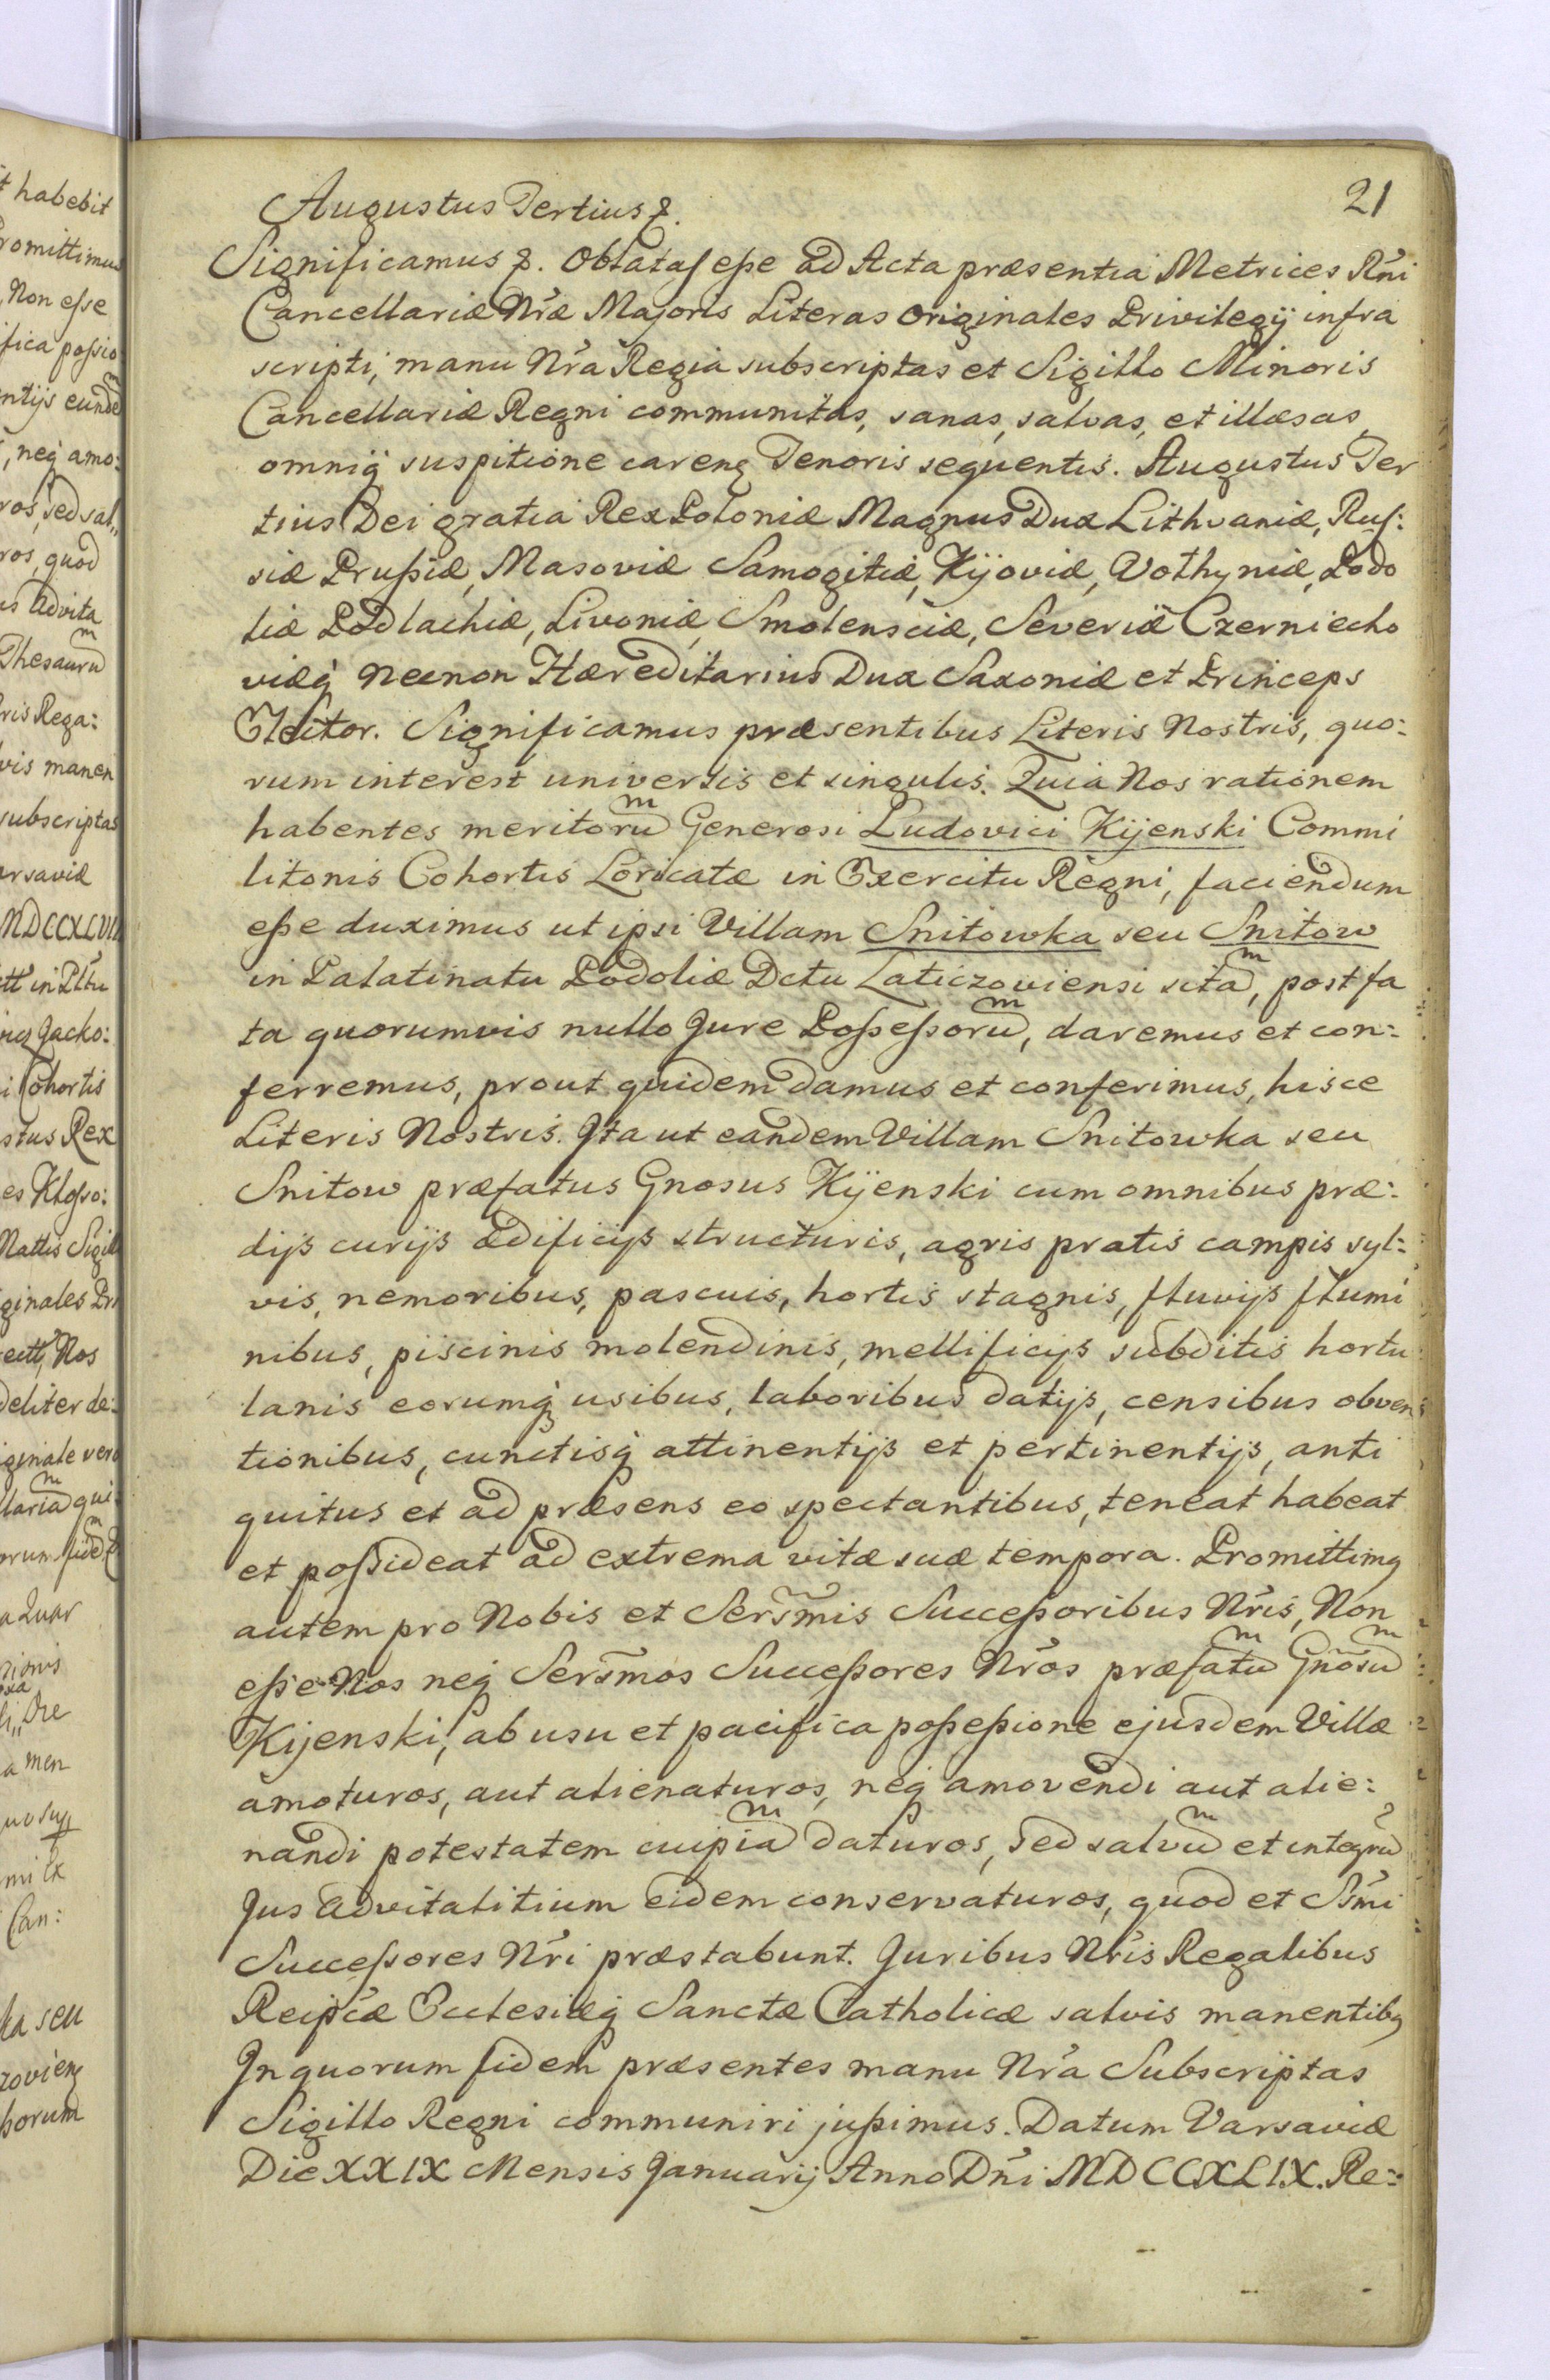 21
Augustus Tertius &.
Significamus &. Oblatas esse ad Acta præsentia Metrices Rñi
Cancellariæ Nræ Majoris Literas originales Privilegij infra
scripti, manu Nra Regia subscriptas et Sigillo Minoris
Cancellariæ Regni communitas, sanas, salvas, et illæsas,
omniq̃ suspitione careng Tenoris sequentis. Augustus Ter
tius Dei gratia Rex Poloniæ Magnus Dux Lithvaniæ, Rus:
siæ Prussiæ, Masoviæ Samogitiæ, Kijoviæ, Volhyniæ, Podo
liæ Podlachiæ, Livoniæ Smolensciæ, Severiæ Czerniecho
viæq̃ necnon Hæreditarius Dux Saxoniæ et Princeps
Elector. Significamus præsentibus Literis Nostris, quo:
rum interest universis et singulis. Quia Nos rationem
habentes meritorum Generosi Ludovici Kijenski Commi
litonis Cohortis Loricatæ in Exercitu Regni, faciendum
esse duximus ut ipsi Villam Snitowka seu Snitow
in Palatinatu Podoliæ Dctu Laticzoviensi sitam, post fa
ta quorumvis nullo Jure Possessorum, daremus et con:
ferremus, prout quidem damus et conferimus, hisce
Literis Nostris. Ita ut eandem Villam Snitowka seu
Snitow præfatus Gnosus Kijenski cum omnibus præ:
dijs curijs ædificijs structuris, agris pratis campis syl:
vis, nemoribus, pascuis, hortis stagnis, fluvijs flumi
nibus, piscinis molendinis, mellificijs subditis hortu
lanis eorumq̃ usibus, laboribus datijs, censibus obven
tionibus, cunctisq̃ attinentijs et pertinentijs, anti
quitus et ad præsens eo spectantibus, teneat habeat
et possideat ad extrema vitæ suæ tempora. Promittimg
autem pro Nobis et Sersmis Successoribus Nris, Non
esse Nos neq̃ Sersmos Successores Nros præfatum Gnosum
Kijenski, ab usu et pacifica possessione ejusdem Villæ
amoturos, aut alienaturos, neq̃ amovendi aut alie:
nandi potestatem cuipiam daturos, sed salvum et integrum
Jus advitalitium eidem conservaturos, quod et Ssmi
Successores Nri præstabunt. Juribus Nris Regalibus
Reipcæ Ecclesiæq̃ Sanctæ Catholicæ salvis manentibg
In quorum fidem præsentes manu Nra Subscriptas
Sigillo Regni communiri jussimus. Datum Varsaviæ
Die XXIX Mensis Januarij Anno Dni MDCCXLIX. Re: